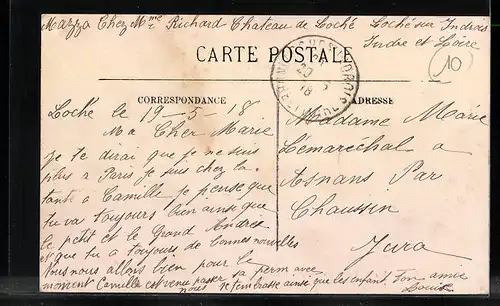 Mazza Chez Mme Richard Chateau de Loché Loché sur Indrois
Indre et Loire
CARTE POSTALE
10
20
18
CORRESPONDANCE
ADRESSE
Loché le 19-5-18
Ma Cher Marie
Je te dirai que je ne suis
plus a Paris je suis chez la
tante à Camille je pense que
tu va toujours bien ainsi que
le petit et le Grand André
et que tu à toujours de bonnes nouvelles
nous nous allons bien pour le
moment Camille est venue passer sa perm avec
nous je t'embrasse ainsi que les enfants ton amie
Louise
Madame Marie
Lémaréchal a
Asnans Par
Chaussin
Jura